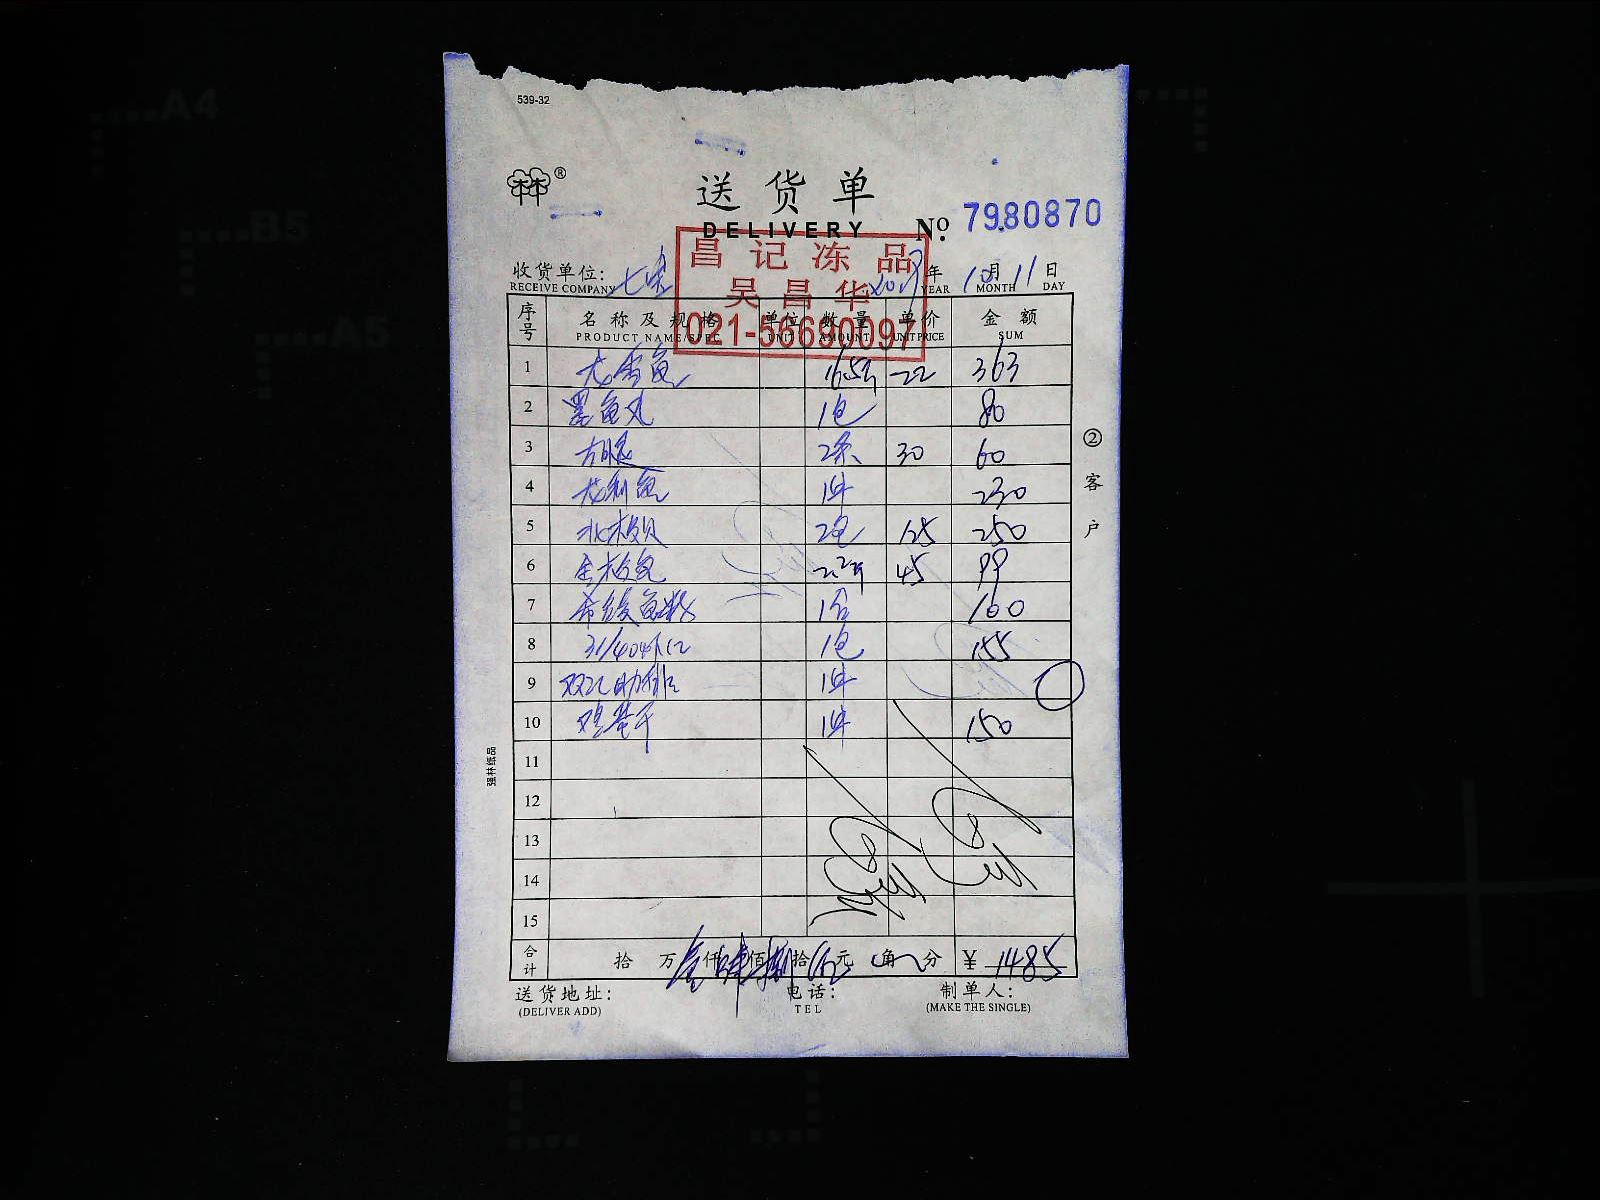 A4
B5
A5
539-32
林®
送货单
DELIVERY
No. 7980870
昌记冻品
吴昌华
021-56690097
收货单位: 七味 年 10月 11日
RECEIVE COMPANY YEAR MONTH DAY
序号 名称及规格 单位 数量 单价 金额
PRODUCT NAME/SPEC UNIT AMOUNT UNIT PRICE SUM
1 龙雪鱼 16.5斤 22 363
2 墨鱼丸 1包 80
3 方腿 2条 30 60
4 龙利鱼 1件 230
5 北极贝 2包 125 250
6 2.2斤 45 99
7 希鲮鱼 1盒 100
8 31/40虾仁 1包 155
9 双汇肋排 1件
10 1件 150
11
12
13
14
15
合计 拾 万 壹仟肆佰捌拾伍元 角 分 ¥ 1485
送货地址: 电话: 制单人:
(DELIVER ADD) TEL (MAKE THE SINGLE)
②客户
强林纸品